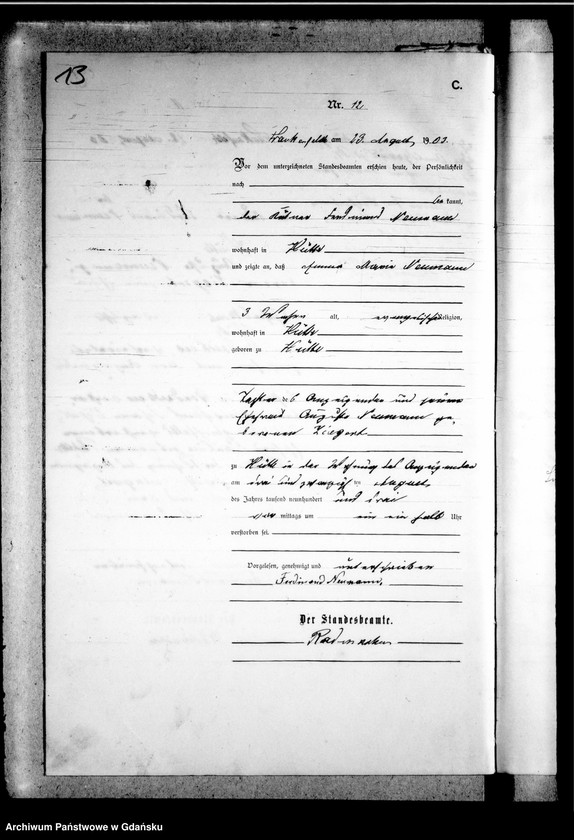 13
C.
Nr. 12
am 23. August 1903.
Vor dem unterzeichneten Standesbeamten erschien heute, der Persönlichkeit
nach
be kannt,
der Ferdinand Neumann
wohnhaft in Hütte
und zeigte an, daß Emma Marie Neumann
3 alt, evangelischer Religion,
wohnhaft in Hütte
geboren zu Hütte
Tochter des Anzeigenden und seiner
Ehefrau Auguste Neumann ge-
borenen Ziegert
zu Hütte in der Wohnung des Anzeigenden
am drei und zwanzigsten August
des Jahres tausend neunhundert und drei
vor mittags um ein ein halb Uhr
verstorben sei.
Vorgelesen, genehmigt und unterschrieben
Ferdinand Neumann.
Der Standesbeamte.
Archiwum Państwowe w Gdańsku